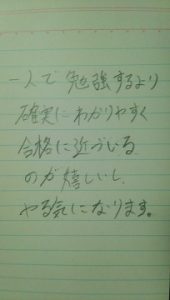 一人で勉強するより
確実にわかりやすく
合格に近づいる
のが嬉しいし、
やる気になります。